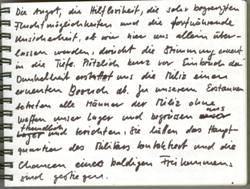 Die Angst, die Hilflosigkeit, die sehr begrenzten
Fluchtmöglichkeiten und die fortwährende
Unsicherheit, ob wir hier uns allein über-
lassen werden, drückt die Stimmung erneut
in die Tiefe. Plötzlich kurz vor Einbruch der
Dunkelheit erstattet uns die Miliz einen
erneuten Besuch ab. Zu unserem Erstaunen
betreten alle Männer der Miliz ohne
Waffen unser Lager und begrüssen
freundlich
und berichten, sie hätten das Haupt-
quartier des Militärs kontaktiert und die
Chancen eines baldigen Freikommens,
sind gestiegen.